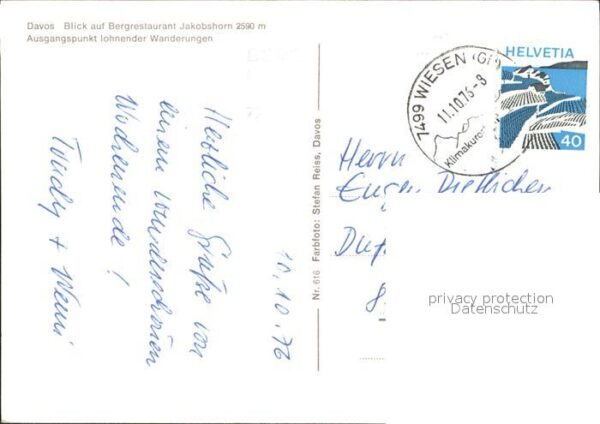 Davos Blick auf Bergrestaurant Jakobshorn 2590 m
Ausgangspunkt lohnender Wanderungen
10.10.76
Herzliche Grüße von
einem wunderschönen
Wochenende!
Trudy + Werni
Nr. 616 Farbfoto: Stefan Reiss, Davos
7499 WIESEN (GR)
11.10.76-8
Klimakuror
HELVETIA
40
Herrn
Eugen
Duf
8
privacy protection
Datenschutz